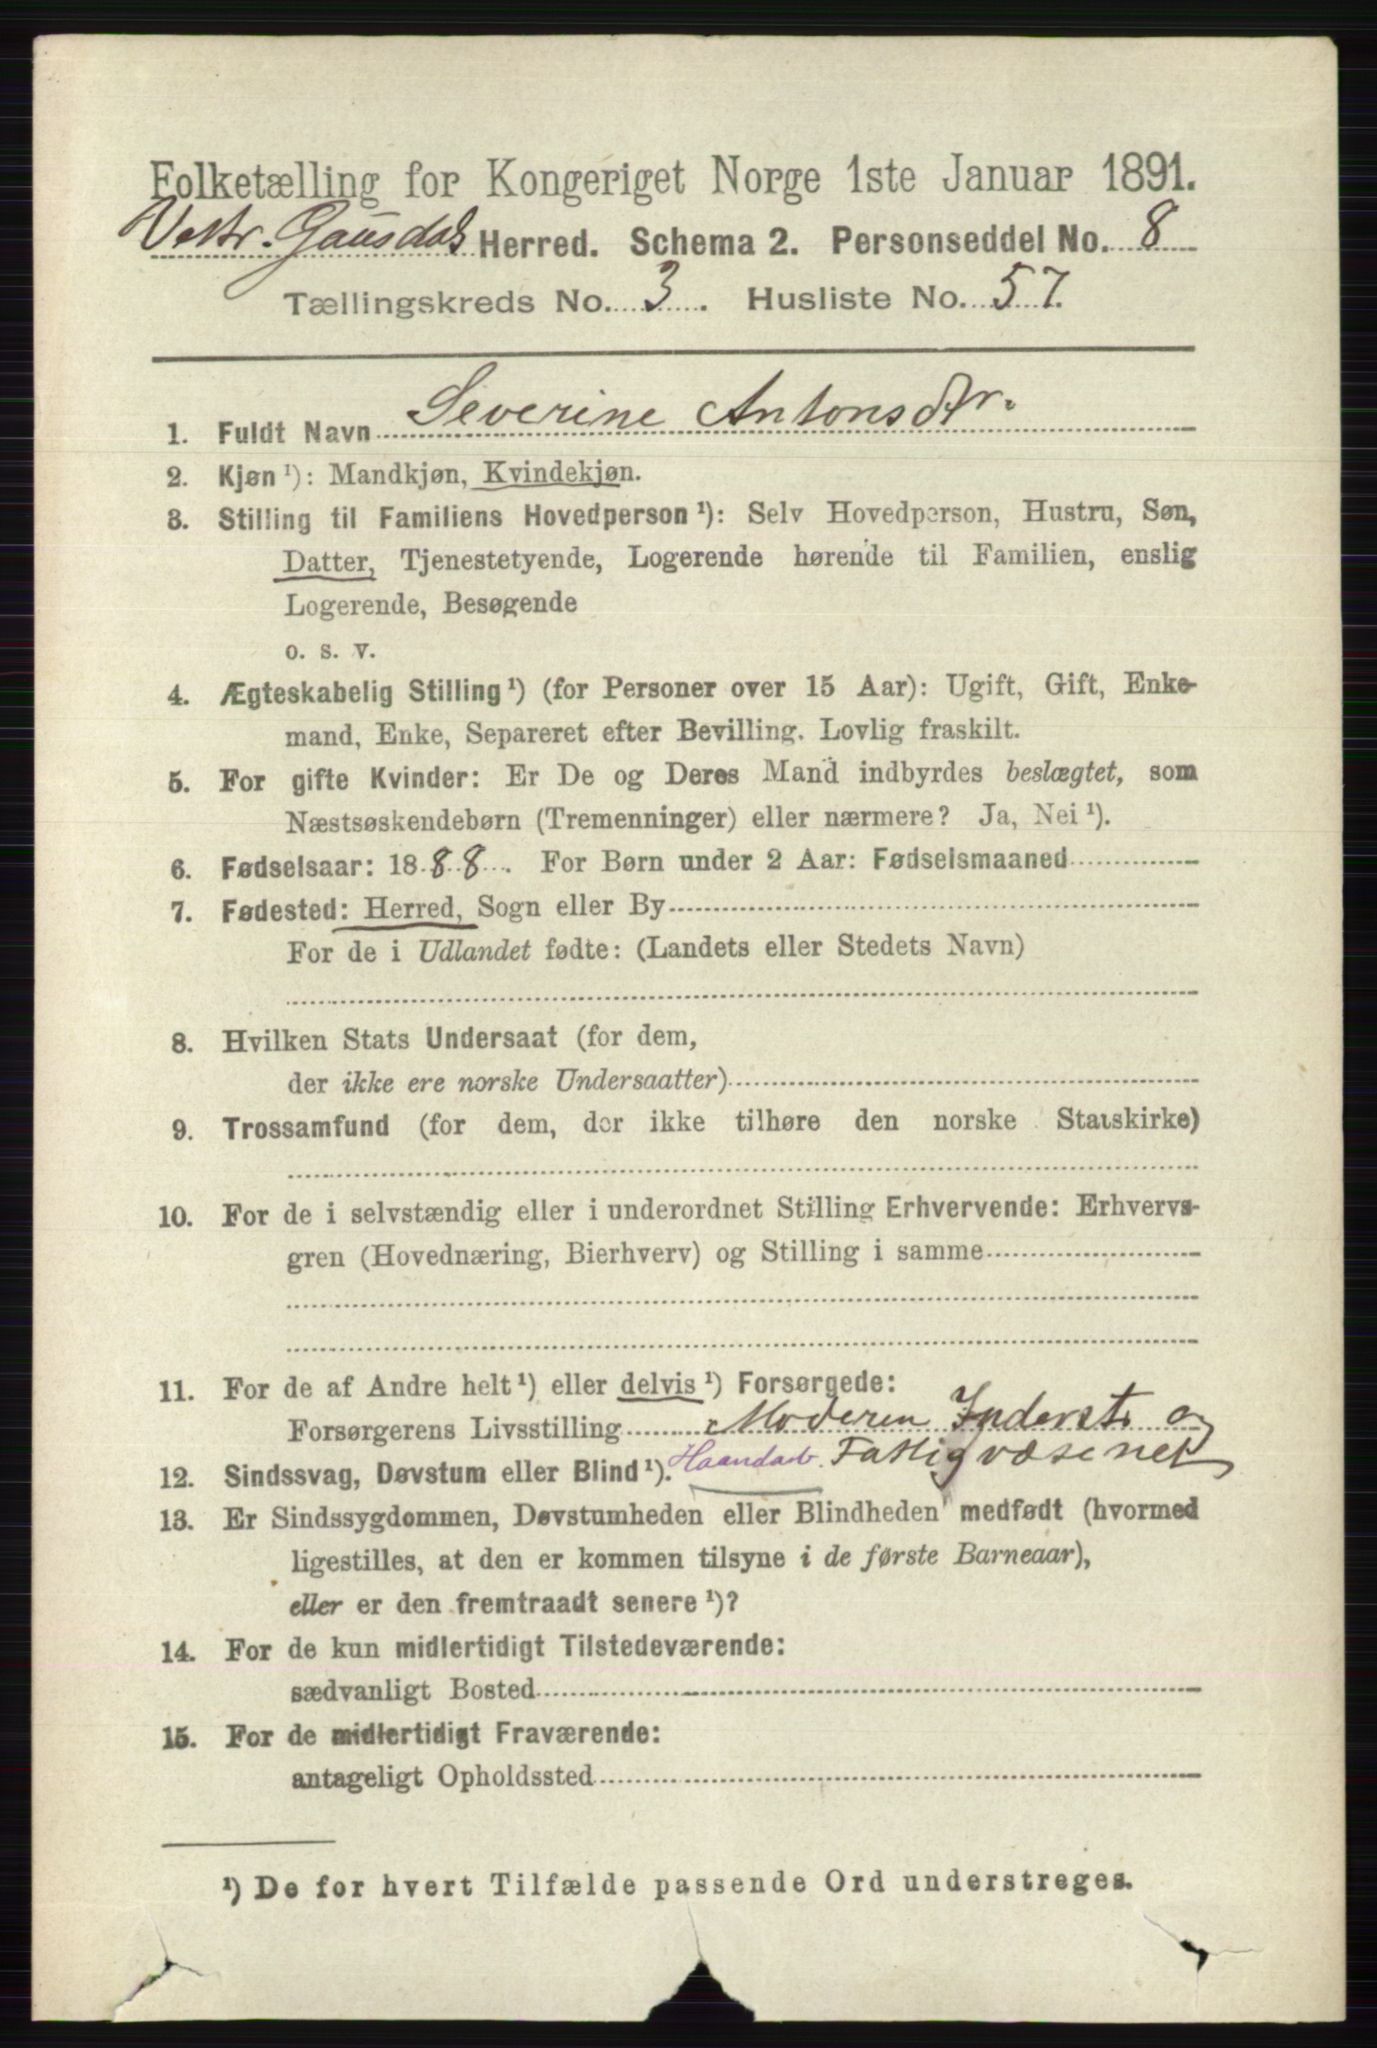 Folketælling for Kongeriget Norge 1ste Januar 1891.
Vestr. Gausdals Herred. Schema 2. Personseddel No. 8
Tællingskreds No. 3. Husliste No. 57.
1. Fuldt Navn Severine Antonsdtr.
2. Kjøn ¹): Mandkjøn, Kvindekjøn.
3. Stilling til Familiens Hovedperson ¹): Selv Hovedperson, Hustru, Søn,
Datter, Tjenestetyende, Logerende hørende til Familien, enslig
Logerende, Besøgende
o. s. v.
4. Ægteskabelig Stilling ¹) (for Personer over 15 Aar): Ugift, Gift, Enke-
mand, Enke, Separeret efter Bevilling. Lovlig fraskilt.
5. For gifte Kvinder: Er De og Deres Mand indbyrdes beslægtet, som
Næstsøskendebørn (Tremenninger) eller nærmere? Ja, Nei ¹).
6. Fødselsaar: 1888. For Børn under 2 Aar: Fødselsmaaned
7. Fødested: Herred, Sogn eller By
For de i Udlandet fødte: (Landets eller Stedets Navn)
8. Hvilken Stats Undersaat (for dem,
der ikke ere norske Undersaatter)
9. Trossamfund (for dem, der ikke tilhøre den norske Statskirke)
10. For de i selvstændig eller i underordnet Stilling Erhvervende: Erhvervs-
gren (Hovednæring, Bierhverv) og Stilling i samme
11. For de af Andre helt ¹) eller delvis ¹) Forsørgede:
Forsørgerens Livsstilling Moderen Inderst og
12. Sindssvag, Døvstum eller Blind ¹). Haandarb. Fattigvæsenet
13. Er Sindssygdommen, Døvstumheden eller Blindheden medfødt (hvormed
ligestilles, at den er kommen tilsyne i de første Barneaar),
eller er den fremtraadt senere ¹)?
14. For de kun midlertidigt Tilstedeværende:
sædvanligt Bosted
15. For de midlertidigt Fraværende:
antageligt Opholdssted
¹) De for hvert Tilfælde passende Ord understreges.